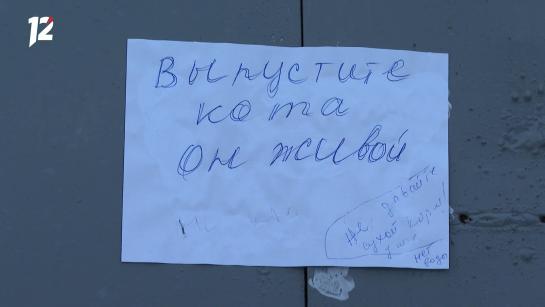 12
Выпустите
кота
он живой
Не давайте
сухой корм!
нет
воды